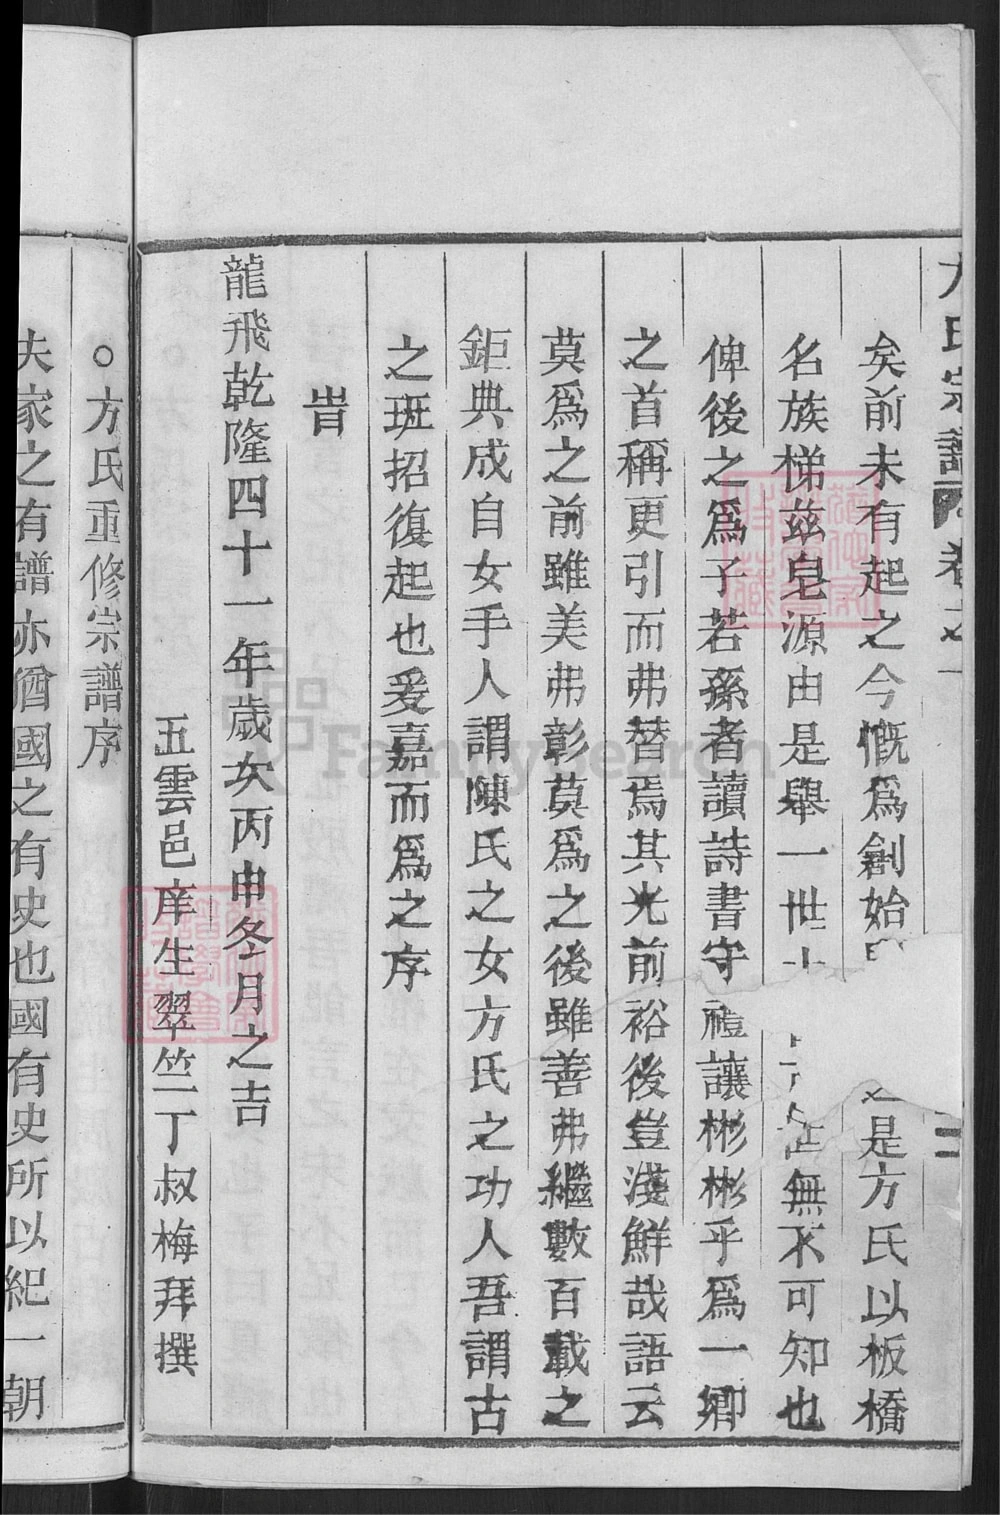 方氏宗譜 卷之一 二
矣前未有起之今慨爲創始 是方氏以板橋
名族梯茲皂源由是舉一世 無不可知也
俾後之爲子若孫者讀詩書守禮讓彬彬乎爲一鄉
之首稱更引而弗替焉其光前裕後豈淺鮮哉語云
莫爲之前雖美弗彰莫爲之後雖善弗繼數百載之
鉅典成自女手人謂陳氏之女方氏之功人吾謂古
之班招復起也爰嘉而爲之序
旹
龍飛乾隆四十一年歲次丙申冬月之吉
五雲邑庠生翠竺丁叔梅拜撰
○方氏重修宗譜序
夫家之有譜亦猶國之有史也國有史所以紀一朝
FamilySearch